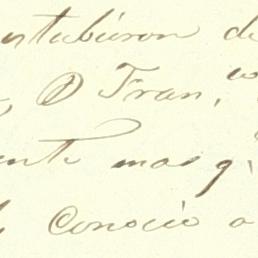 estubieron de
D Fran,co
ente mas q.e
conocio a